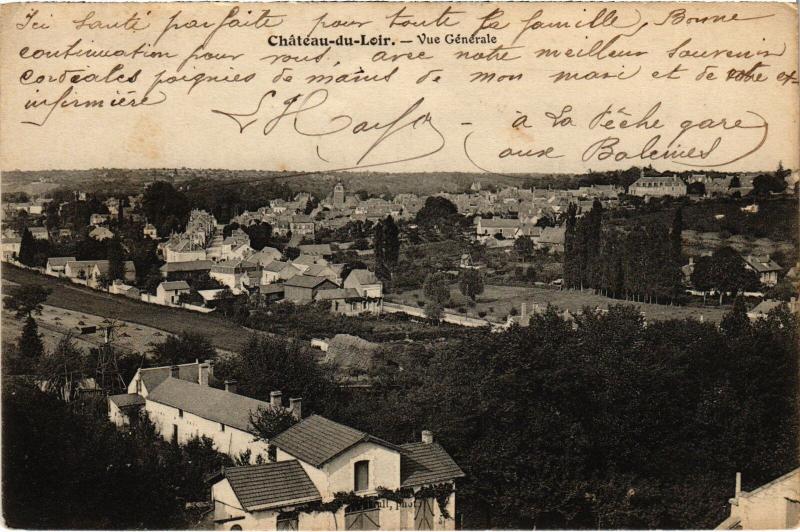 Ici Santé parfaite pour toute la famille, Bonne
Château-du-Loir. — Vue Générale
continuation pour vous, avec notre meilleur souvenir
Cordéales poignies de mains de mon mari et de votre ex-
infirmière
à La Pêche gare
aux Baleines
phot.